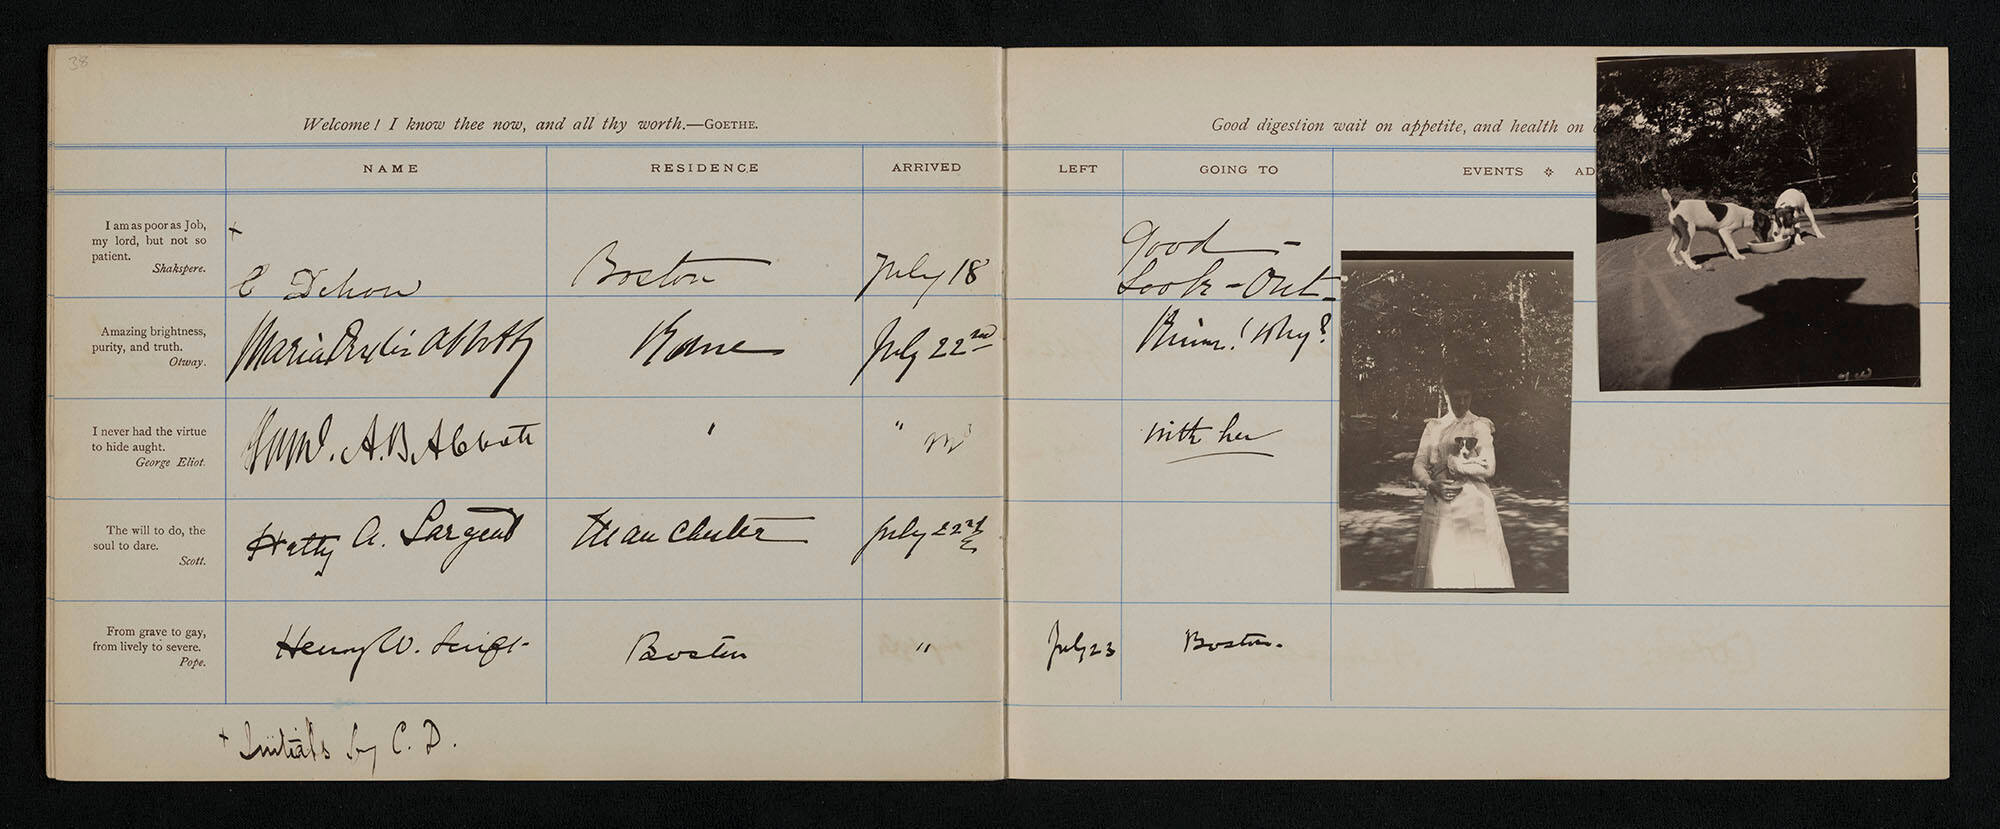 38
Welcome! I know thee now, and all thy worth.—GOETHE.
Good digestion wait on appetite, and health on
NAME RESIDENCE ARRIVED LEFT GOING TO EVENTS AD
I am as poor as Job,
my lord, but not so
patient.
Shakspere.
+
C Dehon Boston July 18 Good -
Look - Out -
Amazing brightness,
purity, and truth.
Otway.
Maria Abbott Rome July 22nd Why?
I never had the virtue
to hide aught.
George Eliot.
Saml. A. B. Abbott " " with her
The will to do, the
soul to dare.
Scott.
Hatty A. Sargent Manchester July 22nd
From grave to gay,
from lively to severe.
Pope.
Henry W. Swift Boston " July 23 Boston.
+ Initials by C. D.